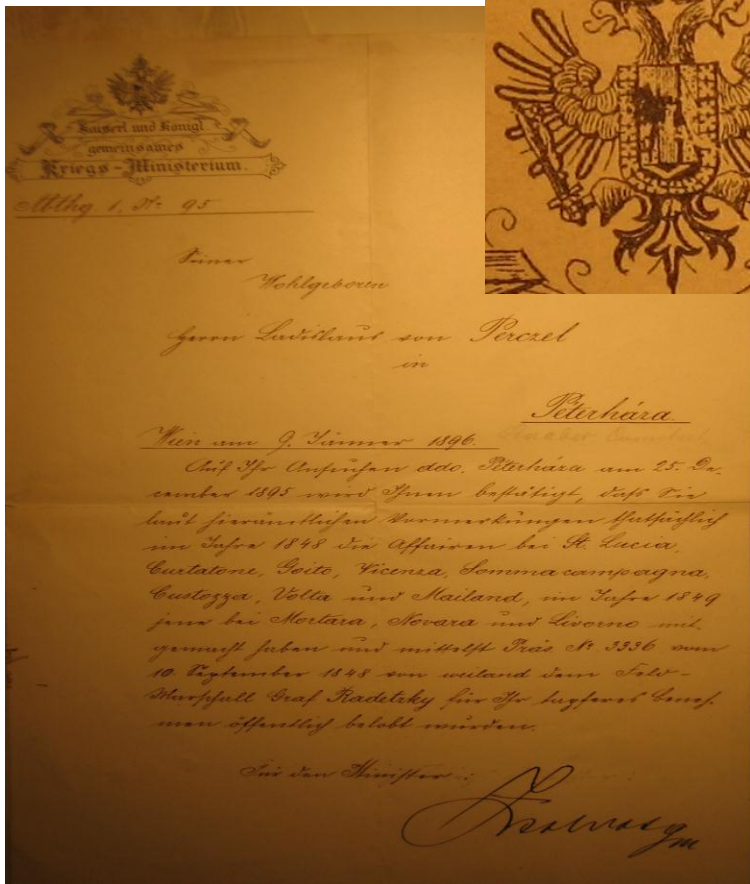 Kaiserl und Königl
gemeinsames
Kriegs-Ministerium.
Abthg 1, Nr 95
Seiner
Wohlgeboren
Herrn Ladislaus von Perczel
in
Péterháza.
Wien am 9. Jänner 1896.
Auf Ihr Ansuchen ddo. Péterháza am 25. De-
cember 1895 wird Ihnen bestätigt, daß Sie
laut hierämtlichen Vormerkungen thatsächlich
im Jahre 1848 die Affairen bei St. Lucia,
Curtatone, Goito, Vicenza, Sommacampagna,
Custozza, Volta und Mailand, im Jahre 1849
jene bei Mortara, Novara und Livorno mit-
gemacht haben und mittelst Präs. Nr. 3336 vom
10. September 1848 von weiland dem Feld-
Marschall Graf Radetzky für Ihr tapferes Beneh-
men öffentlich belobt wurden.
Für den Minister: